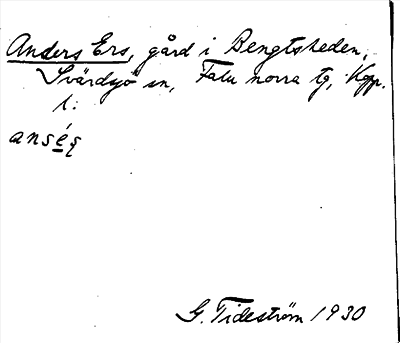 Anders Ers, gård i Bengtsheden,
Svärdsjö sn, Falu norra tg, Kopp.
l.
G. Tideström 1930